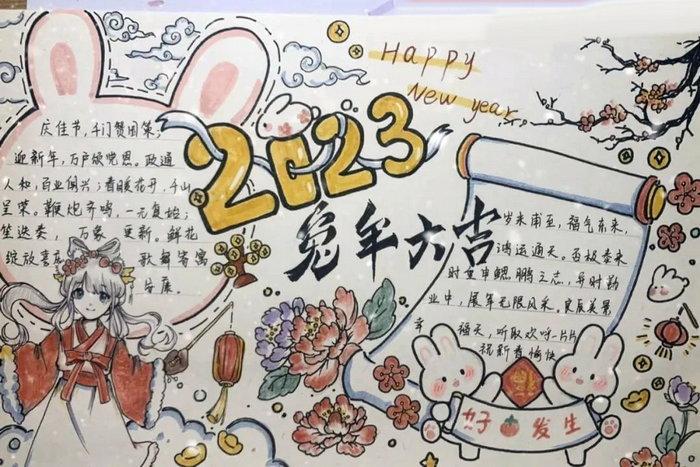 Happy
New year
2023
兔年大吉
庆佳节,千门赞国策;
迎新年,万户颂党恩。政通
人和,百业俱兴;春暖花开,千山
呈荣。鞭炮齐鸣,一元复始;
笙迭奏,万象更新。鲜花
绽放喜
歌舞寄寓
安康。
岁来甫至,福气东来,
鸿运通天。否极泰来
时宜申鲲鹏之志,升时勤
业中,展年无限风采。良辰美景
幸福天,听取欢呼一片片
祝新春愉快
好 发生